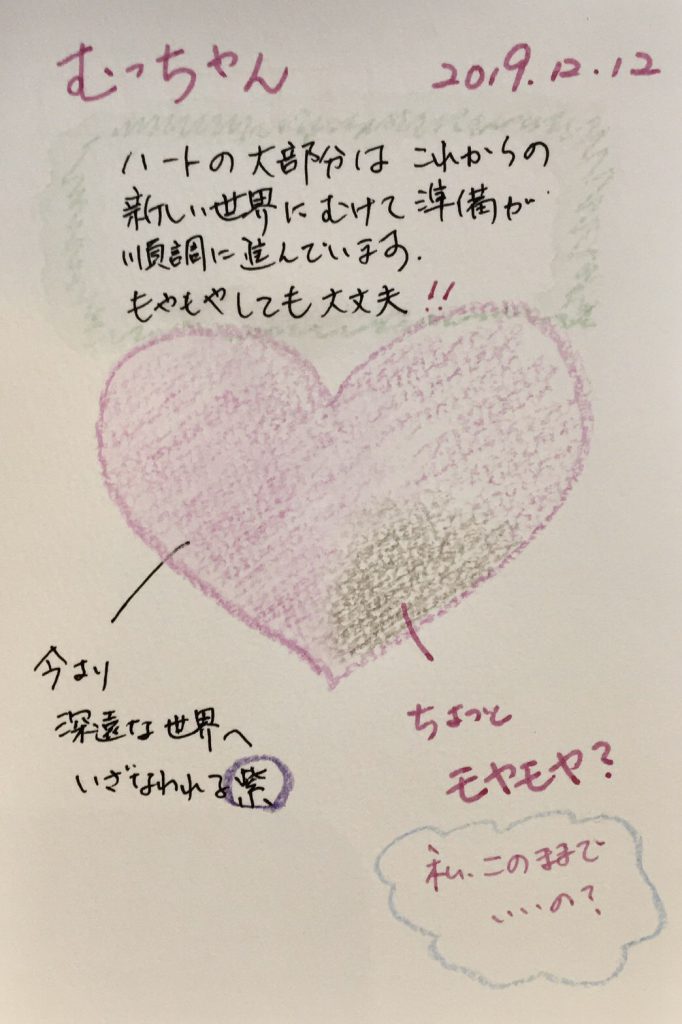 むっちゃん 2019.12.12
ハートの大部分は これからの
新しい世界にむけて準備が
順調に進んでいます.
もやもやしても大丈夫!!
今より
深遠な世界へ
いざなわれる紫
ちょっと
モヤモヤ?
私、このままで
いいの?